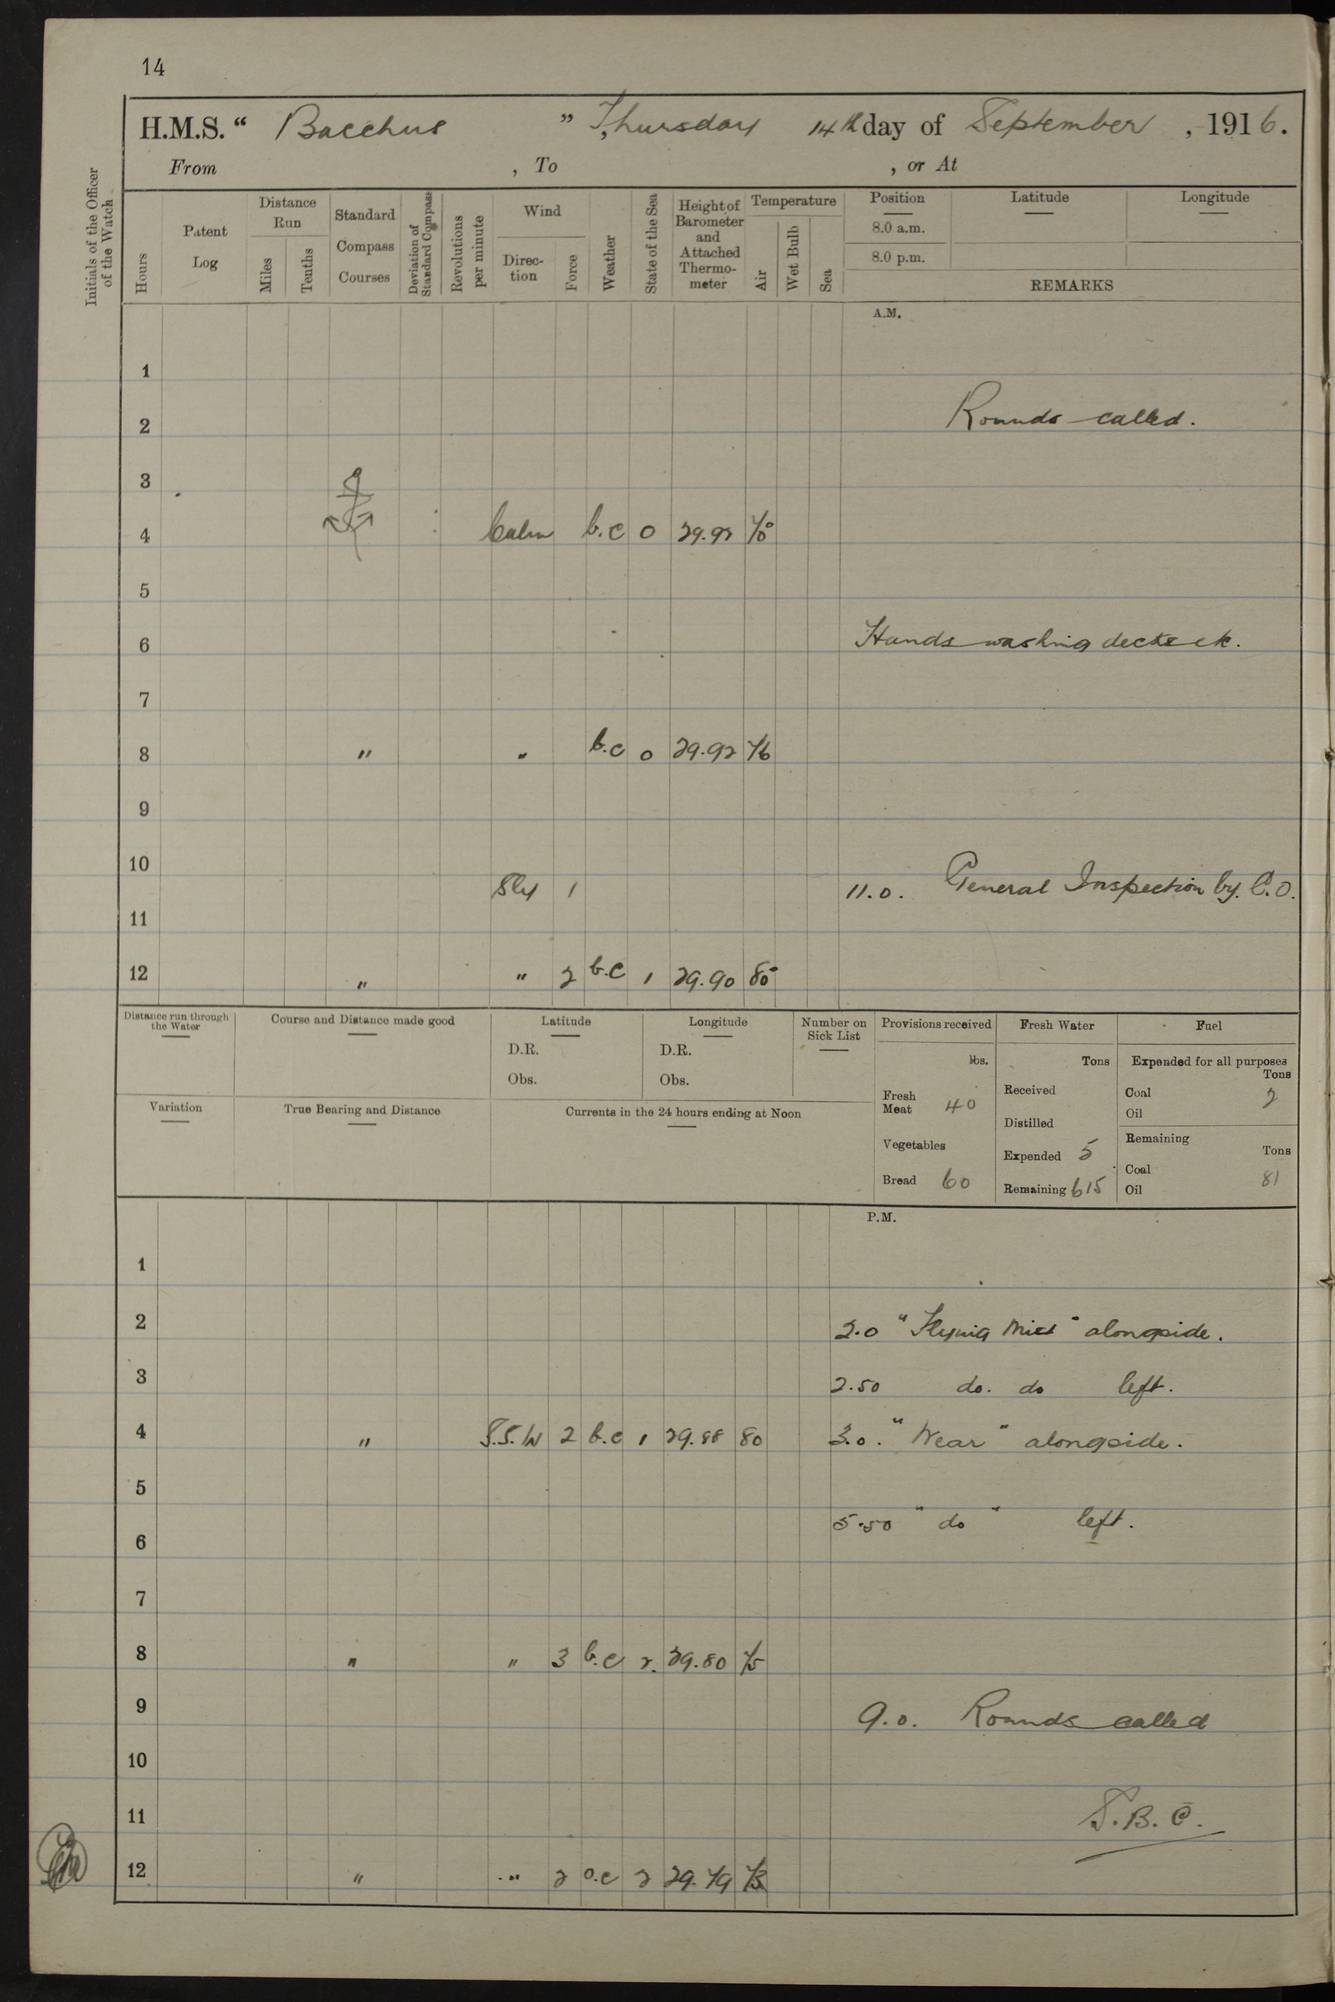 14
H.M.S. “ Bacchus ” Thursday 14th day of September , 1916.
From , To , or At
Initials of the Officer of the Watch
Hours
Patent Log
Distance Run
Miles
Tenths
Standard Compass Courses
Deviation of Standard Compass
Revolutions per minute
Wind
Direction
Force
Weather
State of the Sea
Height of Barometer and Attached Thermometer
Temperature
Air
Wet Bulb
Sea
Position Latitude Longitude
8.0 a.m.
8.0 p.m.
REMARKS
A.M.
1
2 Rounds called.
3
4 Calm b.c 0 29.92 70°
5
6 Hands washing decks
7
8 " " b.c 0 29.92 76
9
10
Sly 1 11.0. General Inspection by. C.O.
11
12 " " 2 b.c 1 29.90 80
Distance run through the Water
Course and Distance made good
Latitude
D.R.
Obs.
Longitude
D.R.
Obs.
Number on Sick List
Provisions received
lbs.
Fresh Meat 40
Vegetables
Bread 60
Fresh Water
Tons
Received
Distilled
Expended 5
Remaining 615
Fuel
Expended for all purposes
Tons
Coal 2
Oil
Remaining
Tons
Coal 81
Oil
Variation
True Bearing and Distance
Currents in the 24 hours ending at Noon
P.M.
1
2 2.0 " Flying Mist " alongside.
3 2.50 do. do left.
4 " S.S.W 2 b.c 1 29.88 80 3.0. " Wear " alongside.
5
5.50 " do " left.
6
7
8 " " 3 b.c 2. 29.80 75
9 9.0. Rounds called
10
11 S.B.C.
12 " " 2 o.c 2 29.79 73